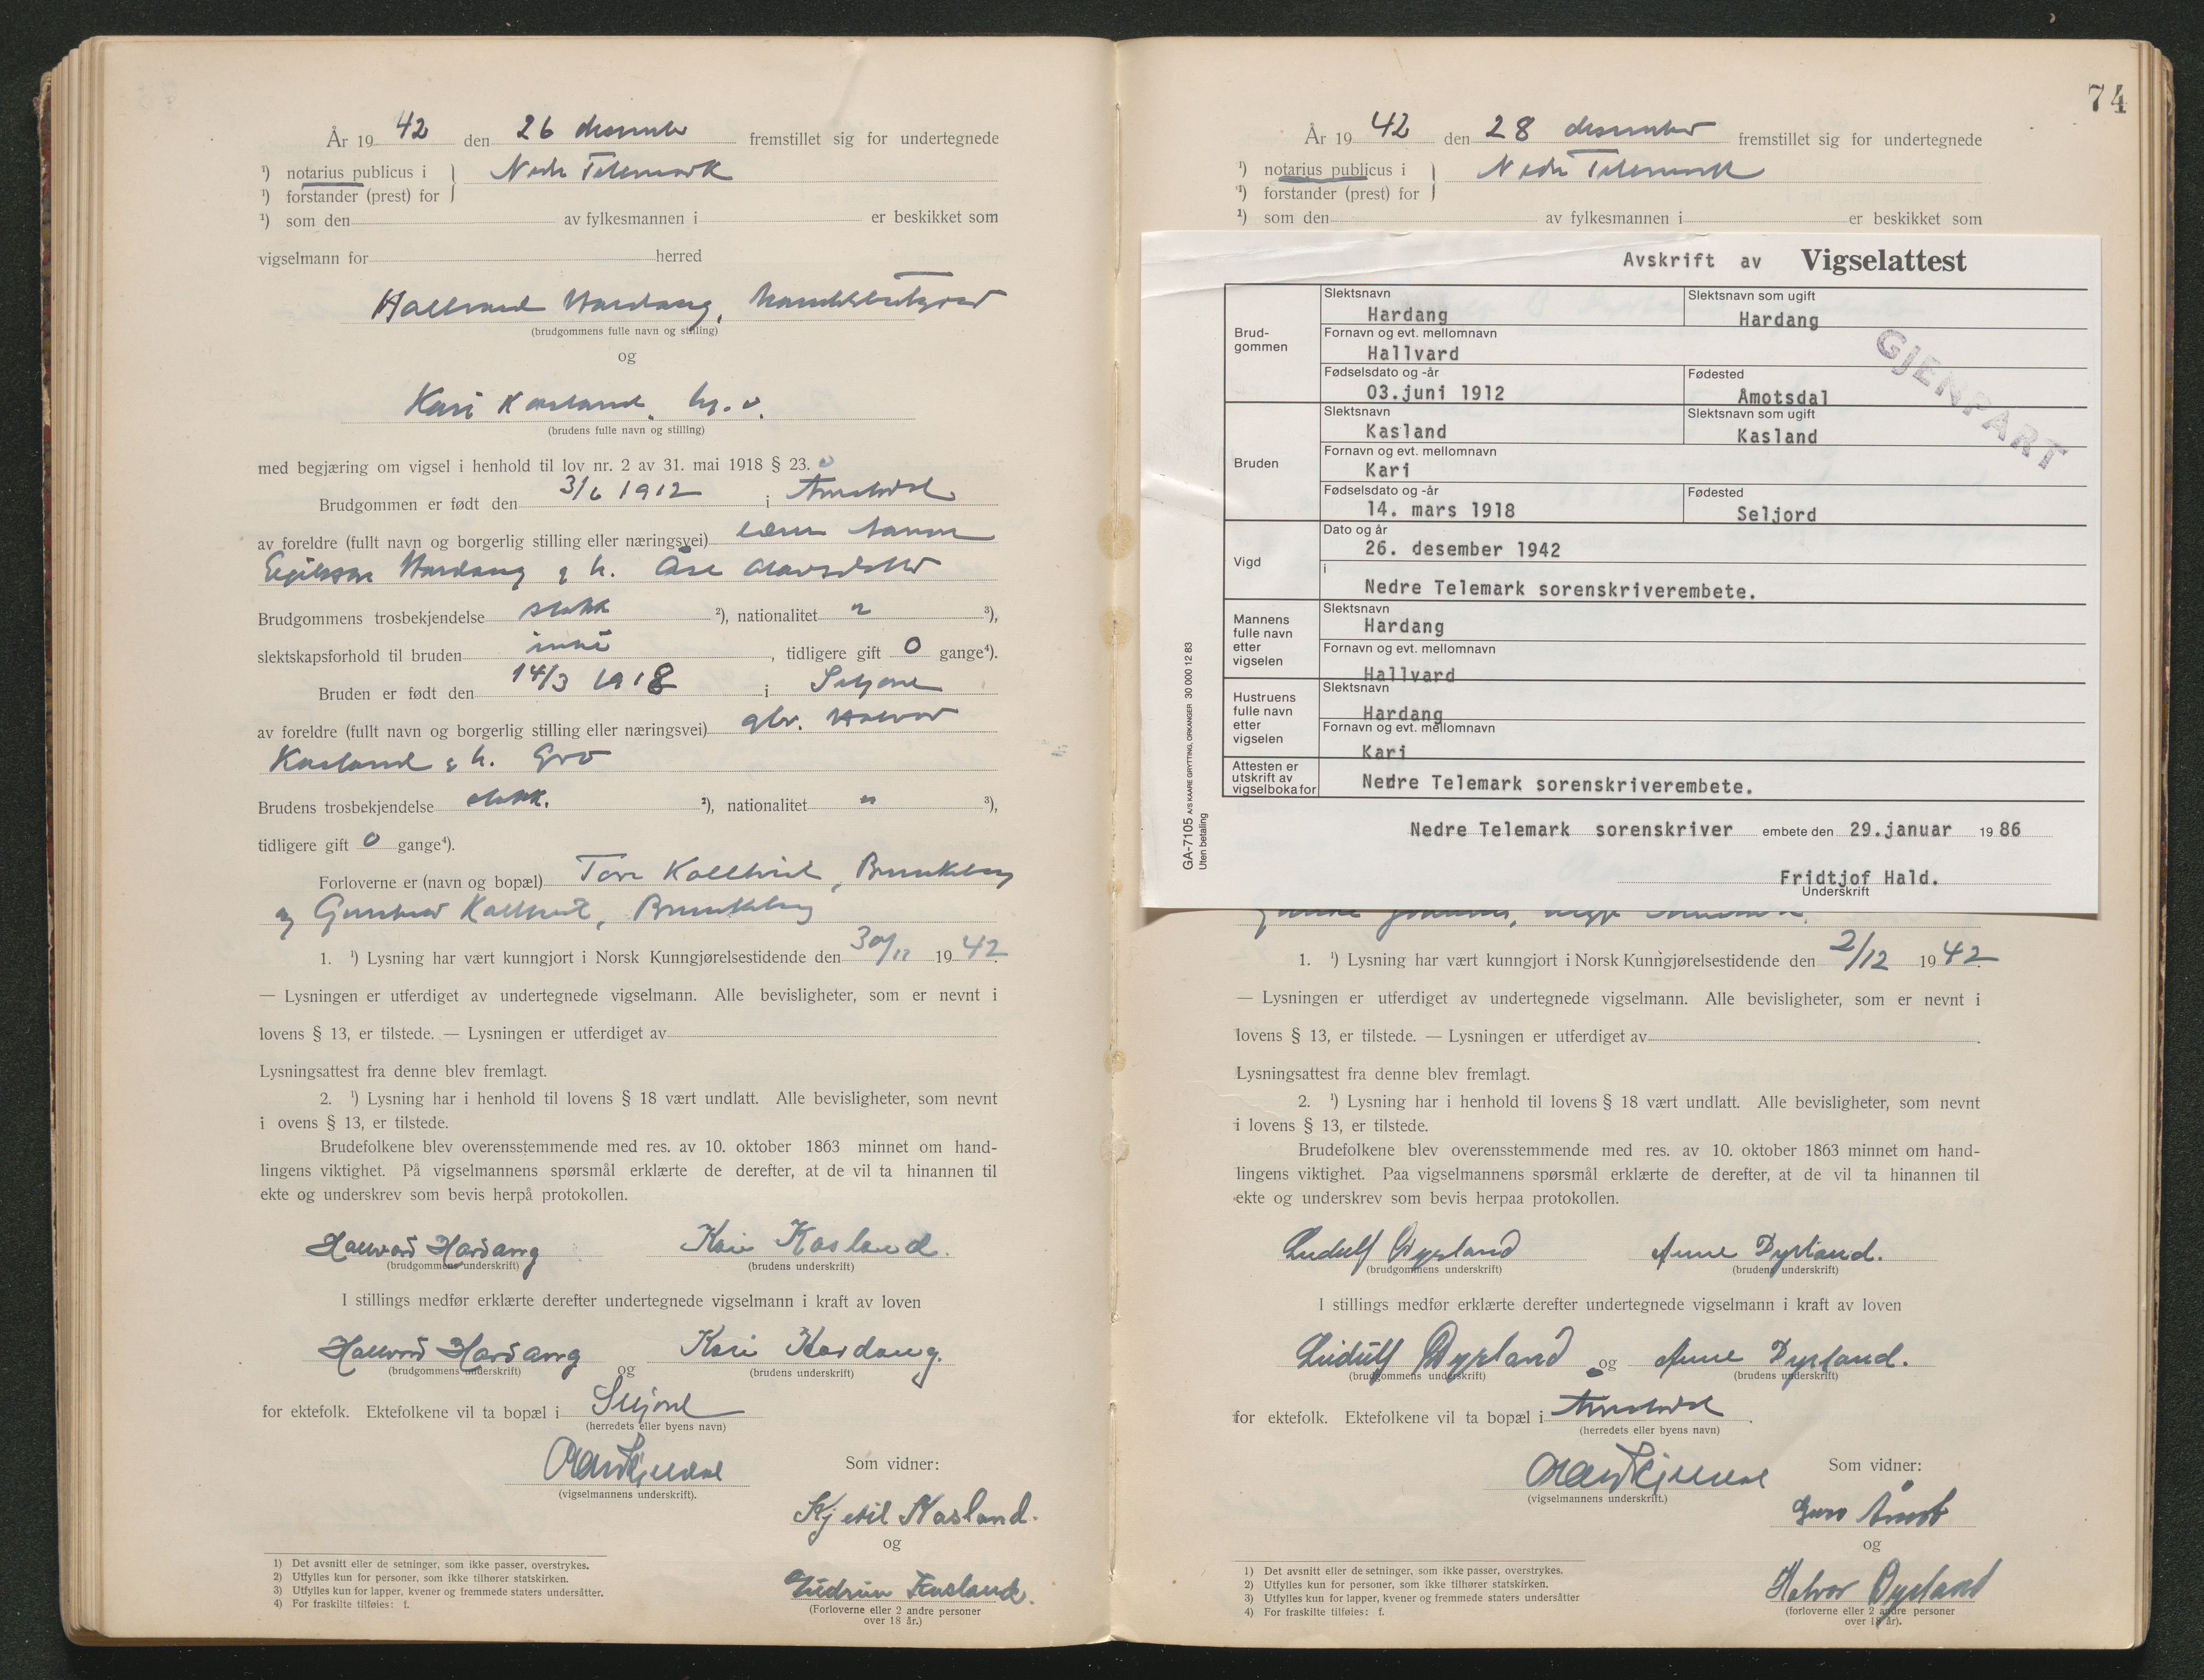 År 19 42 den 26 desember fremstillet sig for undertegnede
¹) notarius publicus i } Nedre Telemark
¹) forstander (prest) for
¹) som den av fylkesmannen i er beskikket som
vigselmann for herred
Hallvard Hardang,
(brudgommens fulle navn og stilling)
og
Kari Kasland,
(brudens fulle navn og stilling)
med begjæring om vigsel i henhold til lov nr. 2 av 31. mai 1918 § 23.
Brudgommen er født den 3/6 1912 i Åmotsdal
av foreldre (fullt navn og borgerlig stilling eller næringsvei) lærer
Hardang & h. Olavsdotter
Brudgommens trosbekjendelse statsk ²), nationalitet n ³),
slektskapsforhold til bruden intet, tidligere gift 0 gange⁴).
Bruden er født den 14/3 1918 i Seljord
av foreldre (fullt navn og borgerlig stilling eller næringsvei) gbr. Halvor
Kasland & h. Gro
Brudens trosbekjendelse statsk. ²), nationalitet n ³),
tidligere gift 0 gange⁴).
Forloverne er (navn og bopæl) Tore Kolltveit, Brunkeberg
og Gunhild Kolltveit, Brunkeberg
1. ¹) Lysning har vært kunngjort i Norsk Kunngjørelsestidende den 30/11 19 42.
— Lysningen er utferdiget av undertegnede vigselmann. Alle bevisligheter, som er nevnt i
lovens § 13, er tilstede. — Lysningen er utferdiget av
Lysningsattest fra denne blev fremlagt.
2. ¹) Lysning har i henhold til lovens § 18 vært undlatt. Alle bevisligheter, som nevnt
i ovens § 13, er tilstede.
Brudefolkene blev overensstemmende med res. av 10. oktober 1863 minnet om hand-
lingens viktighet. På vigselmannens spørsmål erklærte de derefter, at de vil ta hinannen til
ekte og underskrev som bevis herpå protokollen.
Hallvard Hardang Kari Kasland.
(brudgommens underskrift) (brudens underskrift)
I stillings medfør erklærte derefter undertegnede vigselmann i kraft av loven
Hallvard Hardang og Kari Hardang.
(brudgommens underskrift) (brudens underskrift)
for ektefolk. Ektefolkene vil ta bopæl i Seljord
(herredets eller byens navn)
Som vidner:
(vigselmannens underskrift).
Kjetil Kasland.
og
Gudrun Kasland.
(Forloverne eller 2 andre personer
over 18 år.)
1) Det avsnitt eller de setninger, som ikke passer, overstrykes.
2) Utfylles kun for personer, som ikke tilhører statskirken.
3) Utfylles kun for lapper, kvener og fremmede staters undersåtter.
4) For fraskilte tilføies: f.
74
År 19 42 den 28 desember fremstillet sig for undertegnede
¹) notarius publicus i } Nedre Telemark
¹) forstander (prest) for
¹) som den av fylkesmannen i er beskikket som
Avskrift av Vigselattest
GJENPART
Brud-
gommen
Slektsnavn Slektsnavn som ugift
Hardang Hardang
Fornavn og evt. mellomnavn
Hallvard
Fødselsdato og -år Fødested
03.juni 1912 Åmotsdal
Bruden
Slektsnavn Slektsnavn som ugift
Kasland Kasland
Fornavn og evt. mellomnavn
Kari
Fødselsdato og -år Fødested
14. mars 1918 Seljord
Vigd
Dato og år
26. desember 1942
i
Nedre Telemark sorenskriverembete.
Mannens
fulle navn
etter
vigselen
Slektsnavn
Hardang
Fornavn og evt. mellomnavn
Hallvard
Hustruens
fulle navn
etter
vigselen
Slektsnavn
Hardang
Fornavn og evt. mellomnavn
Kari
Attesten er
utskrift av
vigselboka for
Nedre Telemark sorenskriverembete.
Nedre Telemark sorenskriver embete den 29.januar 19 86
Fridtjof Hald.
Underskrift
GA-7105 A/S KAARE GRYTTING, ORKANGER 30 000 12 83
Uten betaling
1. ¹) Lysning har vært kunngjort i Norsk Kunngjørelsestidende den 2/12 19 42.
— Lysningen er utferdiget av undertegnede vigselmann. Alle bevisligheter, som er nevnt i
lovens § 13, er tilstede. — Lysningen er utferdiget av
Lysningsattest fra denne blev fremlagt.
2. ¹) Lysning har i henhold til lovens § 18 vært undlatt. Alle bevisligheter, som nevnt
i lovens § 13, er tilstede.
Brudefolkene blev overensstemmende med res. av 10. oktober 1863 minnet om hand-
lingens viktighet. Paa vigselmannens spørsmål erklærte de derefter, at de vil ta hinannen til
ekte og underskrev som bevis herpaa protokollen.
Ludulf Dyrland Anne Dyrland.
(brudgommens underskrift) (brudens underskrift)
I stillings medfør erklærte derefter undertegnede vigselmann i kraft av loven
Ludulf Dyrland og Anne Dyrland.
(brudgommens underskrift) (brudens underskrift)
for ektefolk. Ektefolkene vil ta bopæl i Åmotsdal.
(herredets eller byens navn)
Som vidner:
(vigselmannens underskrift.)
Guro Åmot
og
Halvor Dyrland
(forloverne eller 2 andre personer
over 18 år).
1) Det avsnitt eller de setninger, som ikke passer, overstrykes.
2) Utfylles kun for personer, som ikke tilhører statskirken.
3) Utfylles kun for lapper, kvener og fremmede staters undersåtter
4) For fraskilte tilføies: f.